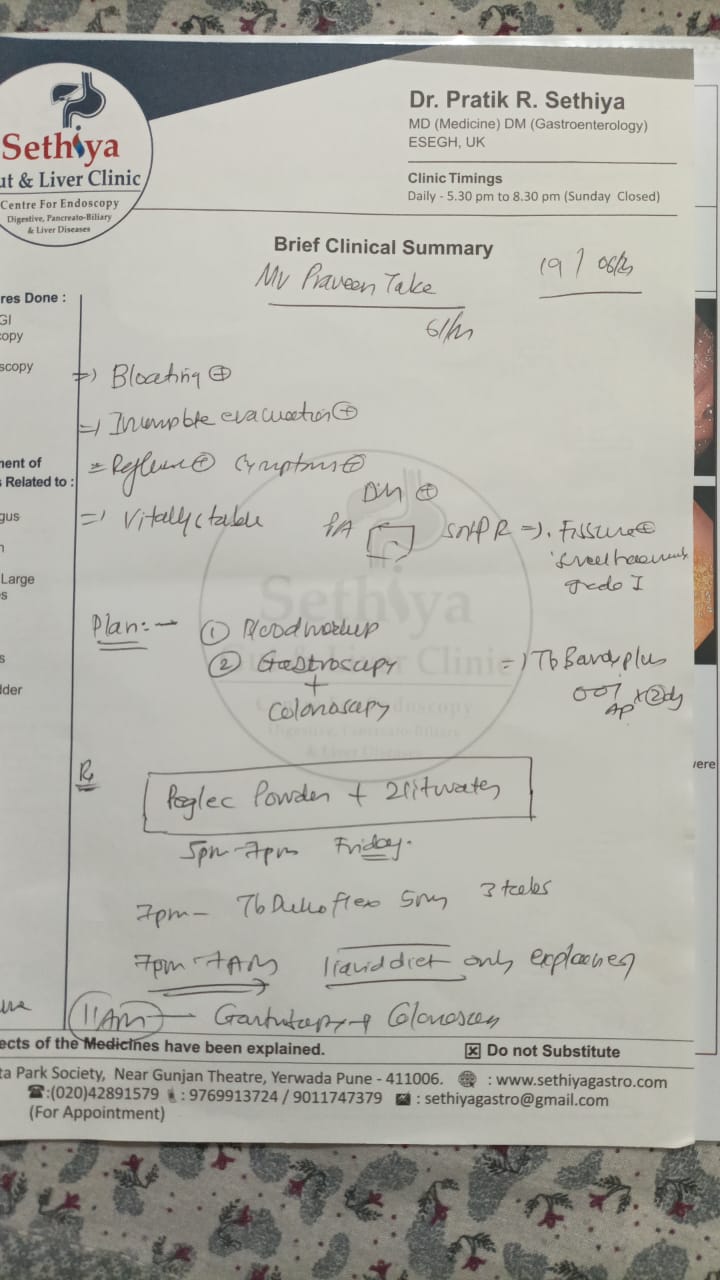 Sethiya
ut & Liver Clinic
Centre For Endoscopy
Digestive, Pancreato-Biliary
& Liver Diseases
Dr. Pratik R. Sethiya
MD (Medicine) DM (Gastroenterology)
ESEGH, UK
Clinic Timings
Daily - 5.30 pm to 8.30 pm (Sunday Closed)
Brief Clinical Summary
Mr Praveen Take
19 / 06/
61/m
res Done :
GI
copy
scopy
ment of
s Related to :
gus
n
Large
s
s
dder
=) Bloating ⊕
=) evacuation ⊕
= Reflux ⊕ Symptoms ⊕
DM ⊕
=) Vitally stable
PA
=) Fissure ⊕
grade I
Plan:-
① Blood workup
② Gastroscopy
+
Colonoscopy
=) Tb plus
Sethiya
Clinic
Rx
Peglec Powder + 2 lit water
5pm-7pm Friday.
7pm- Tb Dulcoflex 5mg
7pm-7AM liquid diet only explained
11AM - Gastroscopy + Colonoscopy
ects of the Medicines have been explained.
☒ Do not Substitute
ta Park Society, Near Gunjan Theatre, Yerwada Pune - 411006. : www.sethiyagastro.com
:(020)42891579 : 9769913724 / 9011747379 : sethiyagastro@gmail.com
(For Appointment)
ere